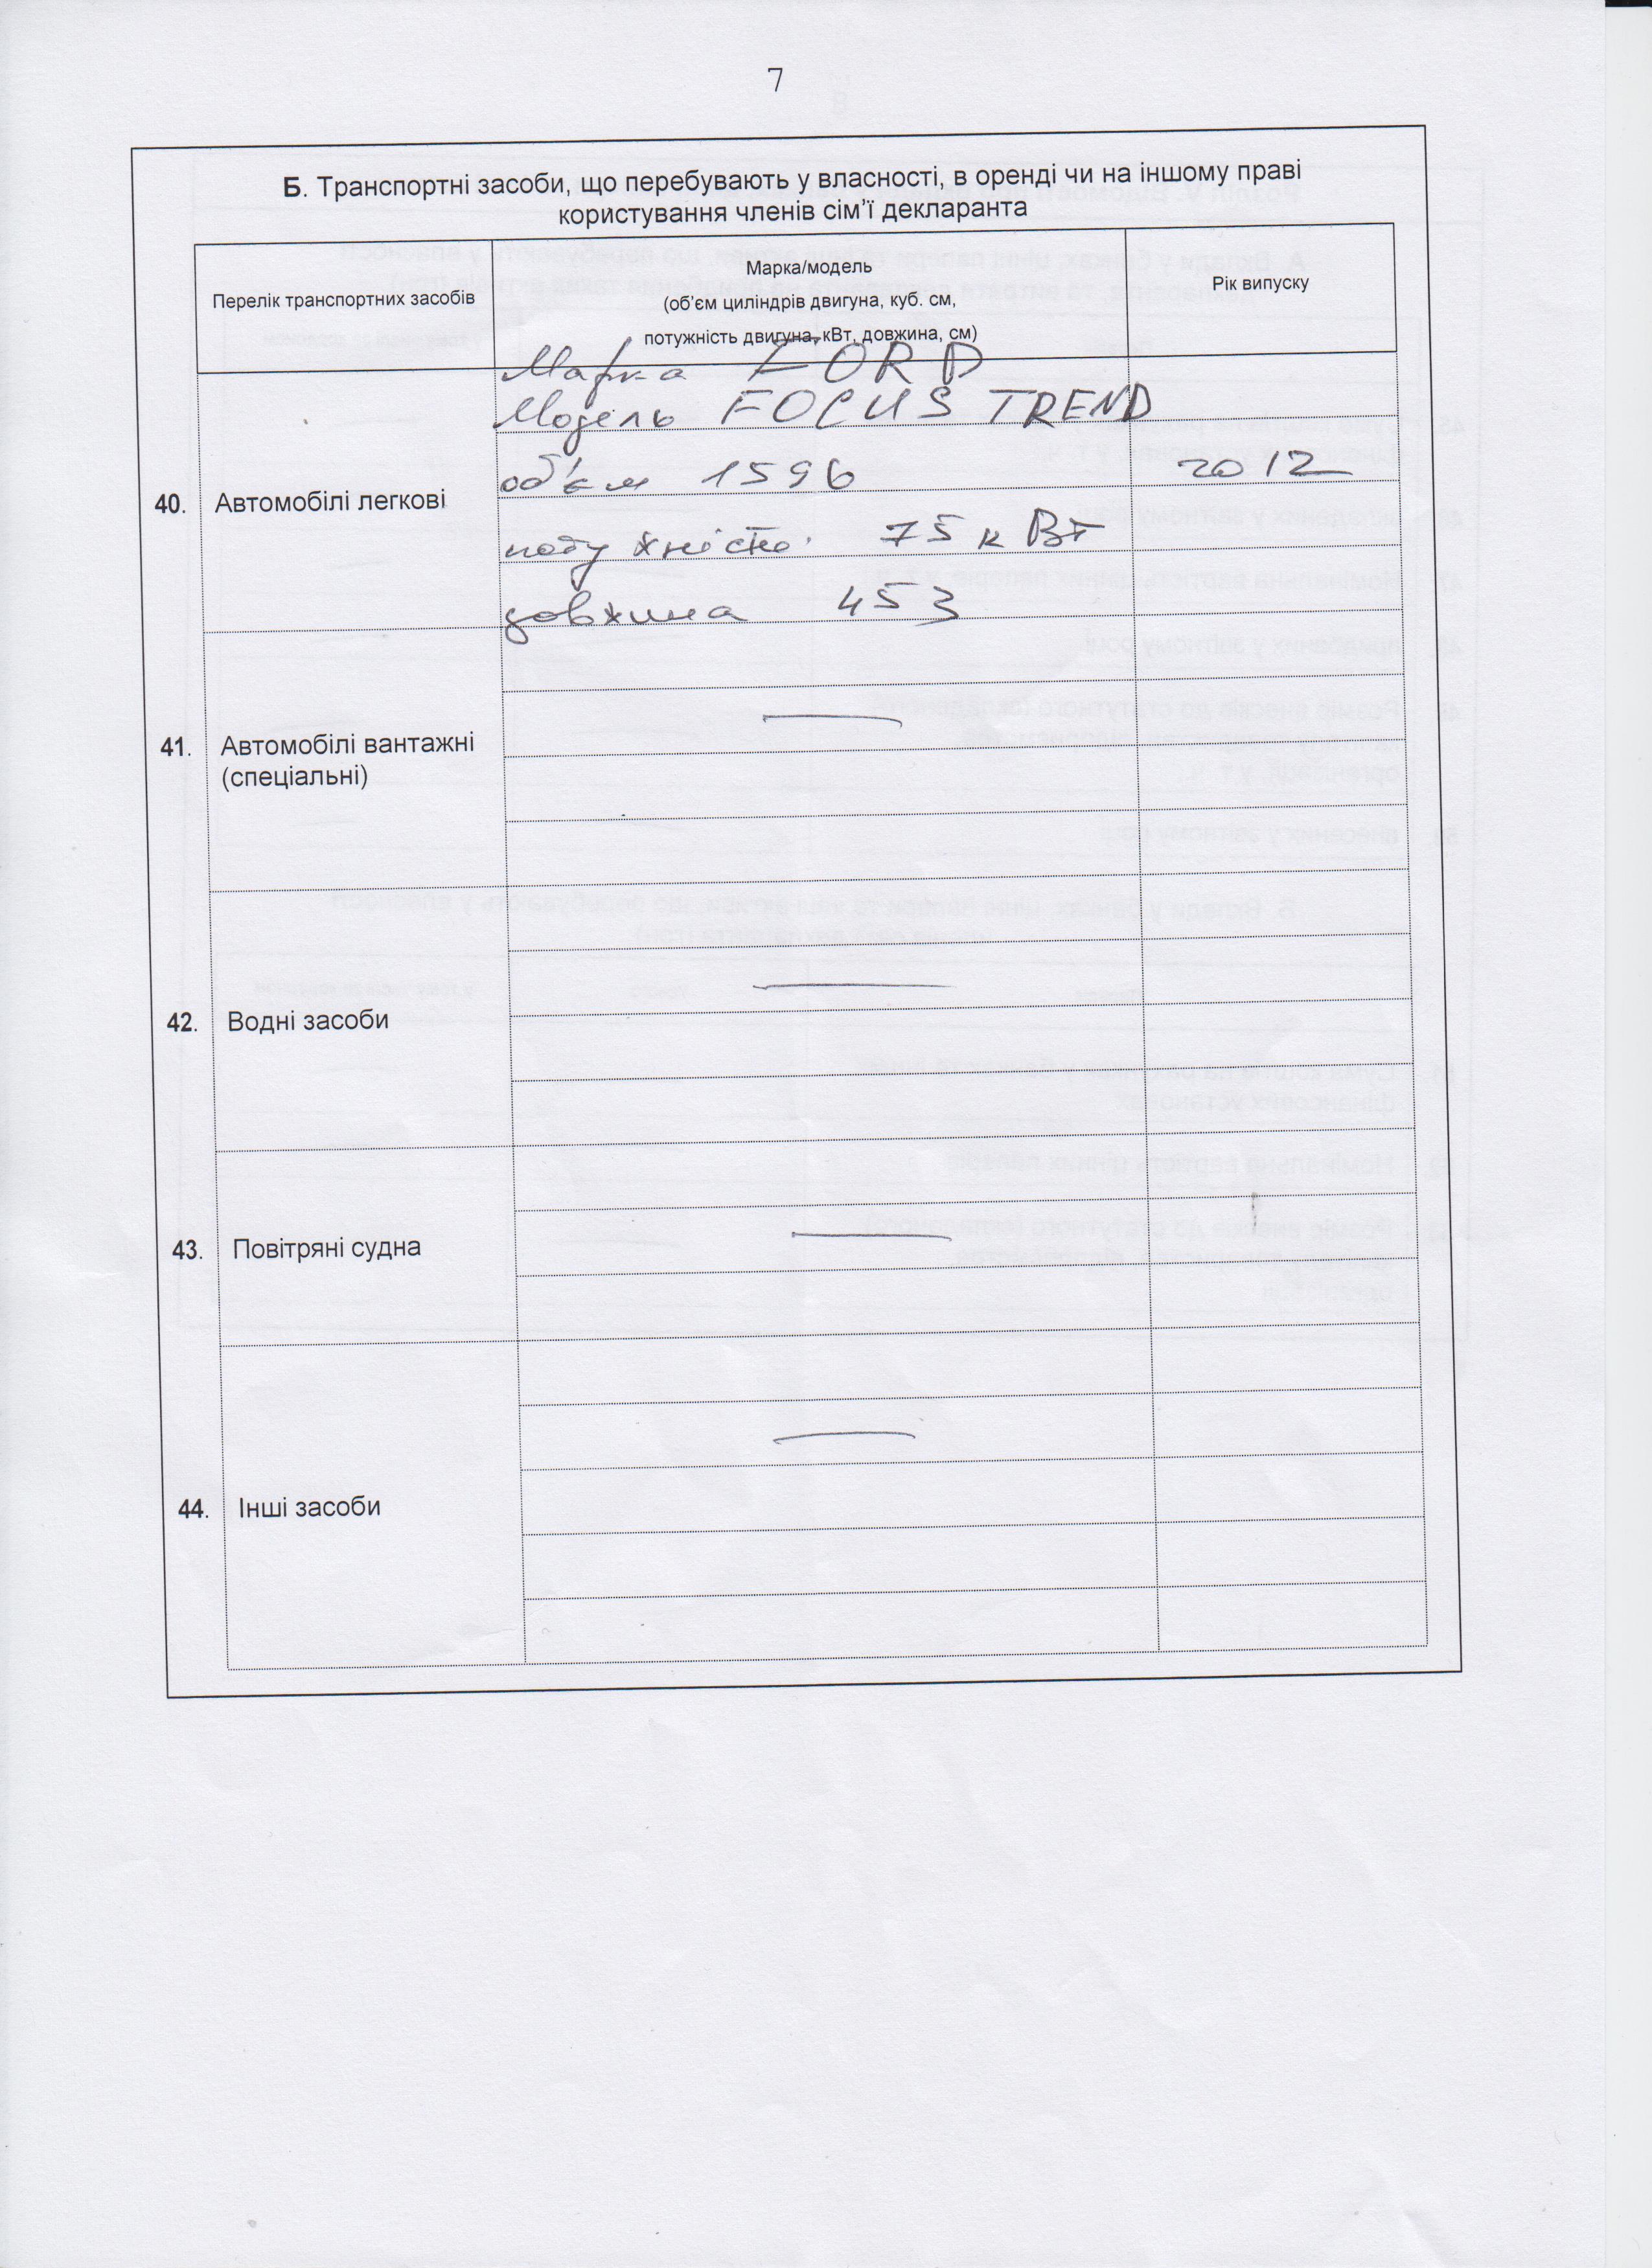 7
Б. Транспортні засоби, що перебувають у власності, в оренді чи на іншому праві
користування членів сім'ї декларанта
Перелік транспортних засобів
Марка/модель
(об'єм циліндрів двигуна, куб. см,
потужність двигуна, кВт, довжина, см)
Рік випуску
Марка FORD
Модель FOCUS TREND
40. Автомобілі легкові
об'єм 1596 2012
потужність 75 кВт
довжина 453
41. Автомобілі вантажні
(спеціальні)
—
42. Водні засоби
—
43. Повітряні судна
—
44. Інші засоби
—